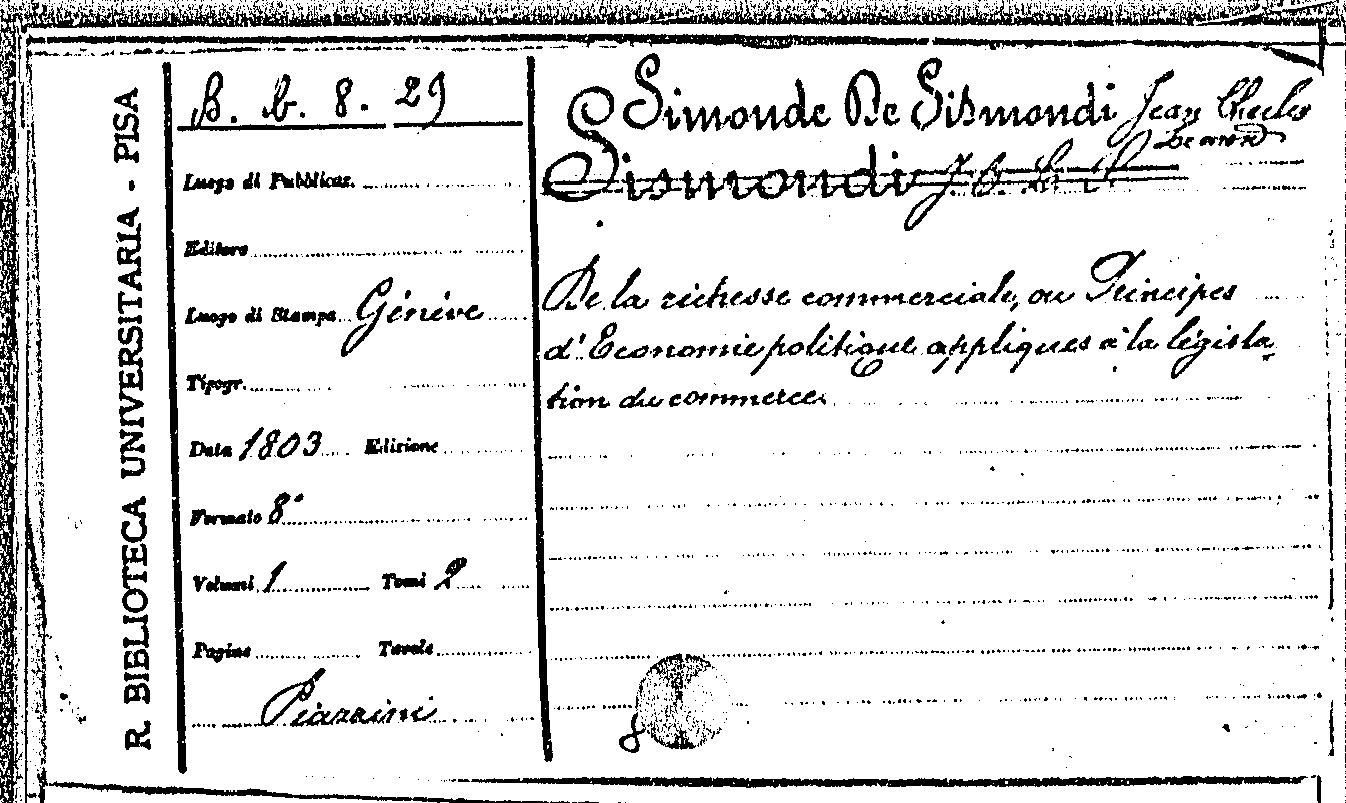 R. BIBLIOTECA UNIVERSITARIA - PISA
B. b. 8. 29
Luogo di Pubblicaz.
Editore
Luogo di Stampa Génève
Tipogr.
Data 1803 Edizione
Formato 8°
Volumi 1 Tomi 2
Pagine Tavole
Piazzini
Simonde De Sismondi Jean Charles
Leonard
Sismondi J. C. L. S.
De la richesse commerciale, ou Principes
d'Economie politique appliques à la législa
tion du commerce.
8